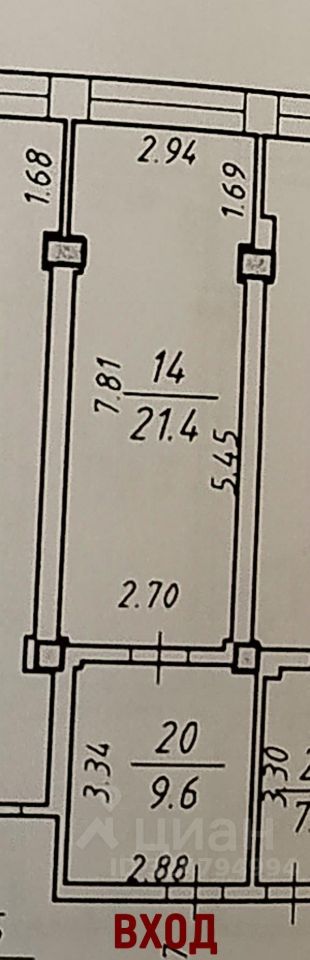 2.94
1.68
1.69
14
7.81
21.4
5.45
2.70
20
3.34
9.6
3.30
2.88
циан
ВХОД